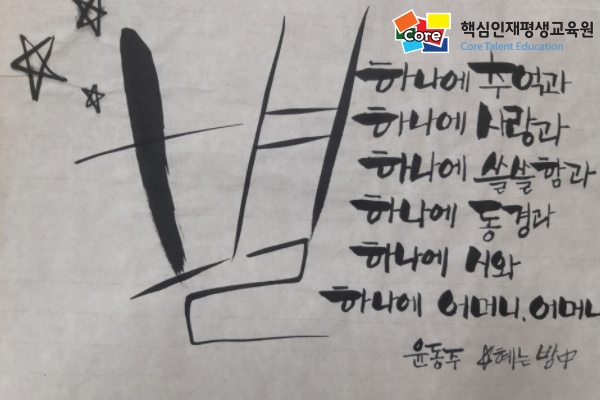 Core
핵심인재평생교육원
Core Talent Education
별
하나에 추억과
하나에 사랑과
하나에 쓸쓸함과
하나에 동경과
하나에 시와
하나에 어머니, 어머니
윤동주 ☆헤는 밤中